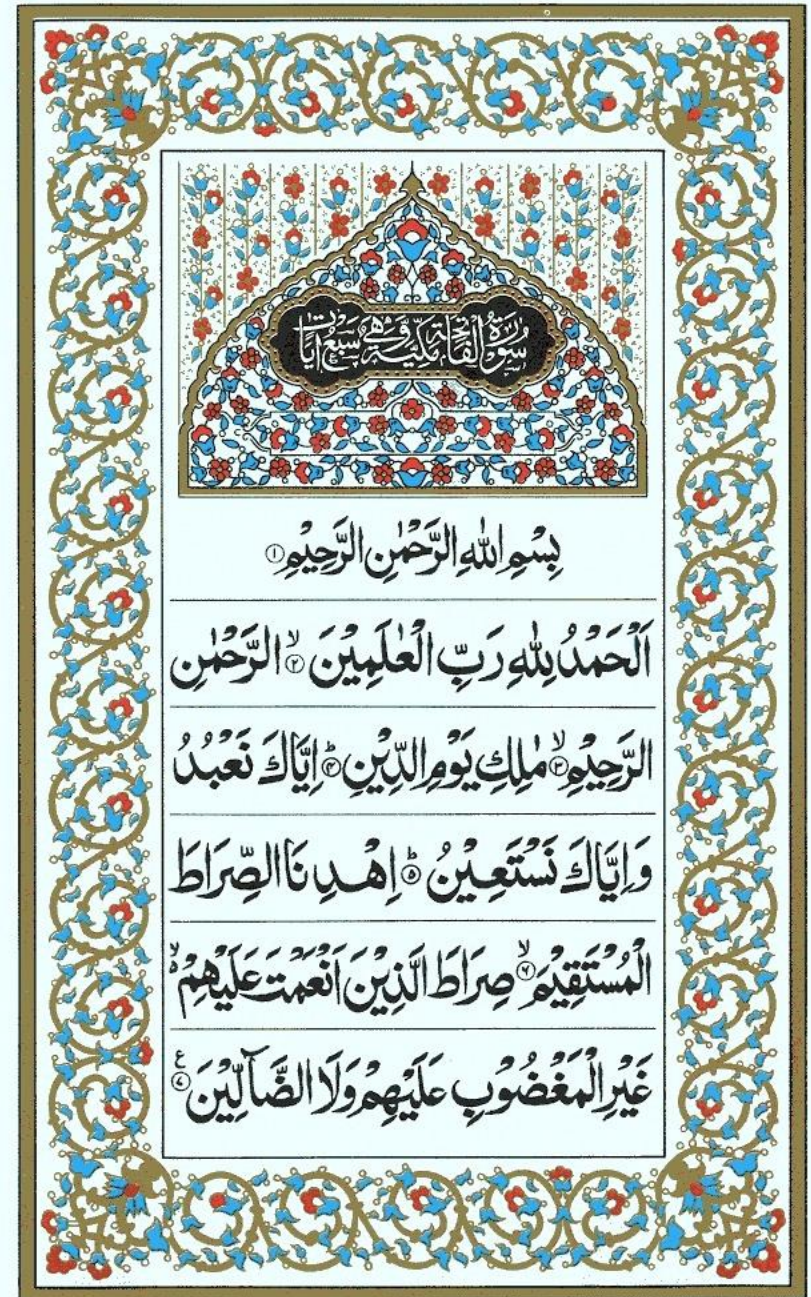 سُوْرَةُ الْفَاتِحَةِ مَكِّيَّةٌ وَّهِيَ سَبْعُ اٰيَاتٍ
بِسْمِ اللّٰهِ الرَّحْمٰنِ الرَّحِيْمِ ۝۱
اَلْحَمْدُ لِلّٰهِ رَبِّ الْعٰلَمِيْنَ ۙ۝۲ الرَّحْمٰنِ
الرَّحِيْمِ ۙ۝۳ مٰلِكِ يَوْمِ الدِّيْنِ ؕ۝۴ اِيَّاكَ نَعْبُدُ
وَاِيَّاكَ نَسْتَعِيْنُ ؕ۝۵ اِهْدِنَا الصِّرَاطَ
الْمُسْتَقِيْمَ ۙ۝۶ صِرَاطَ الَّذِيْنَ اَنْعَمْتَ عَلَيْهِمْ ۙ۬
غَيْرِ الْمَغْضُوْبِ عَلَيْهِمْ وَلَا الضَّآلِّيْنَ ۝۷ ع